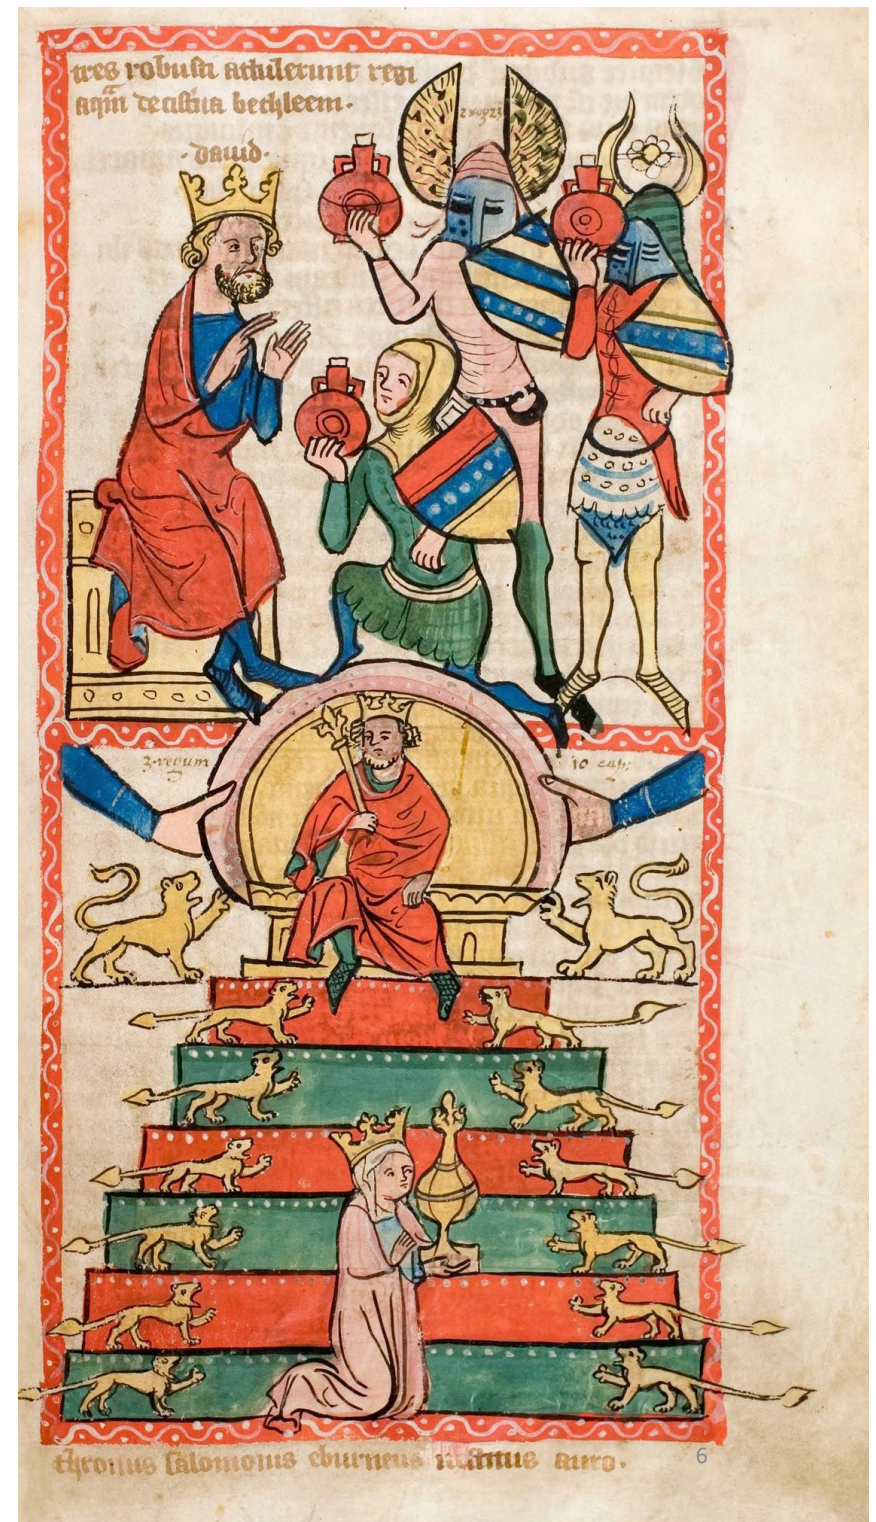 tres robusti attulerunt regi
aqm̃ de cist̾na bethleem·
·dauid·
3·regum
10 cap:
thronus salomonis eburneus uestitus auro.
6